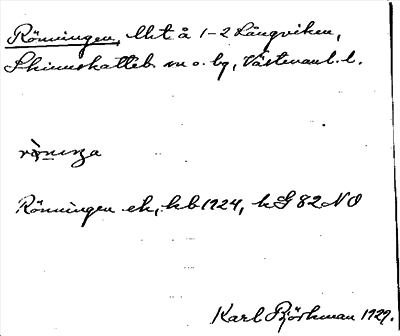 Rönningen, lht å 1-2 Långviken,
Skinnskatteb. sn o. bg, Västmanl. l.
rö̀nɩŋa
Rönningen ek, hb 1924, kG 82 NO
Karl Björkman 1929.